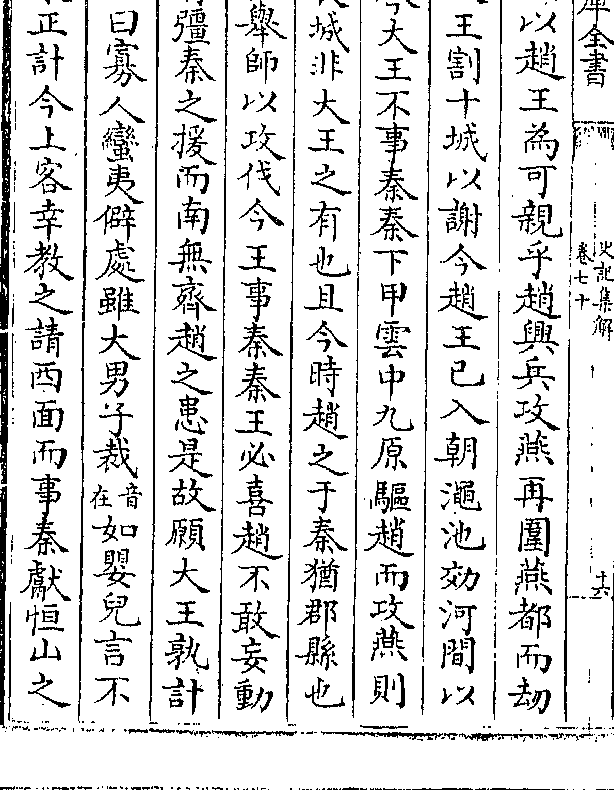 庫全書
史記集解
卷七十
十六
以趙王為可親乎趙興兵攻燕再圍燕都而劫
王割十城以謝今趙王已入朝澠池效河間以
今大王不事秦秦下甲雲中九原驅趙而攻燕則
城非大王之有也且今時趙之于秦猶郡縣也
舉師以攻伐今王事秦秦王必喜趙不敢妄動
彊秦之援而南無齊趙之患是故願大王孰計
曰寡人蠻夷僻處雖大男子裁音在如嬰兒言不
正計今上客幸教之請西面而事秦獻恒山之